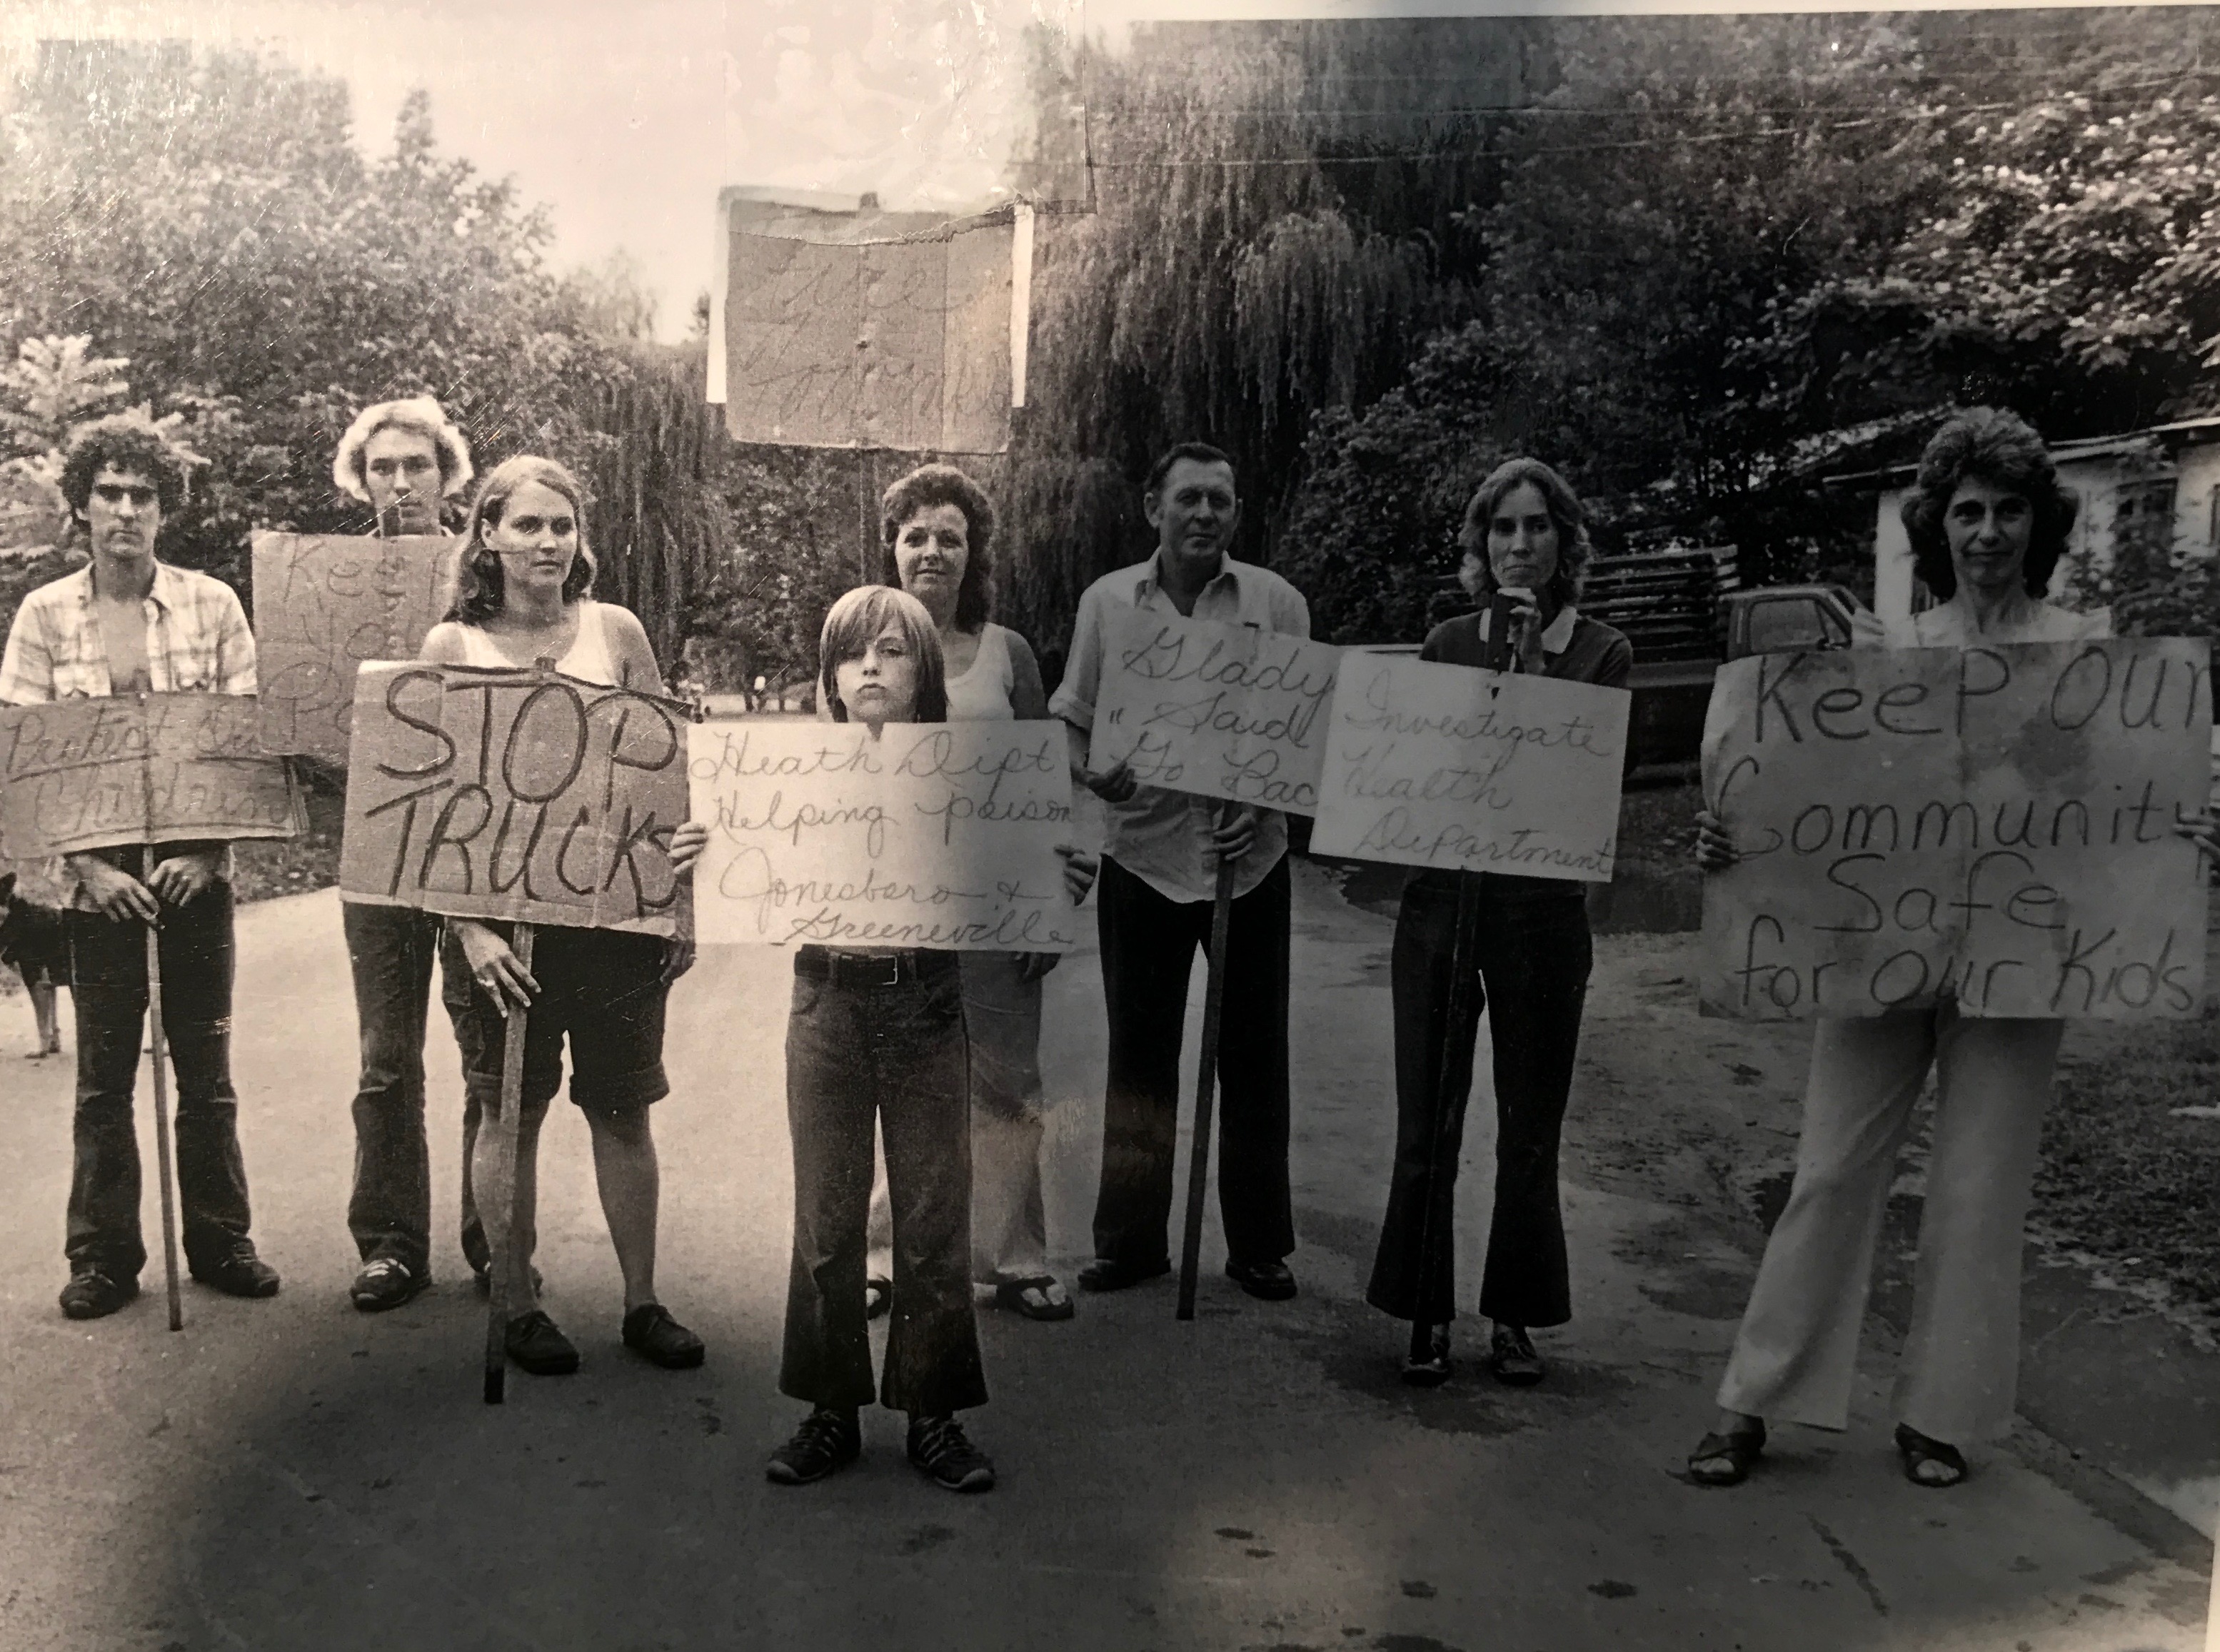 Protect
Children
Keep
STOP
TRUCKS
Heath Dept
Helping poison
Jonesboro &
Greeneville
Glady
" Said
Go Bac
Investigate
Health
Department
Keep Our
Community
Safe
for our Kids